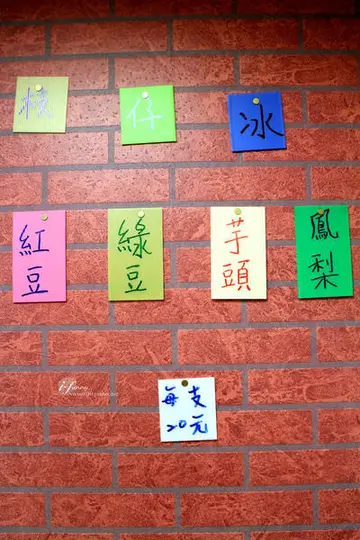 枝 仔 冰
紅豆 綠豆 芋頭 鳳梨
每支
20元